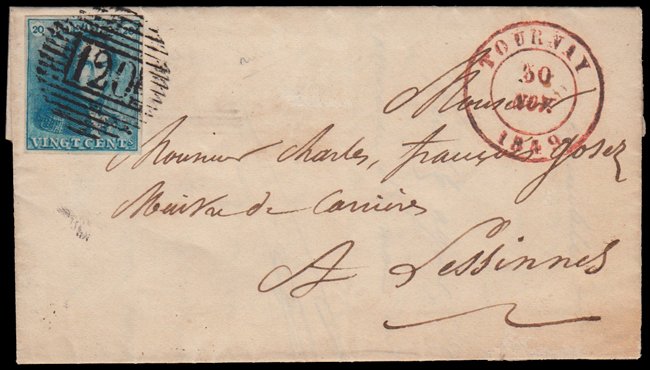 20
120
VINGT CENT.
TOURNAY
30
NOV.
1849
Monsieur
Monsieur Charles, françois Josez
Maitre de Carrières
A Lessinnes